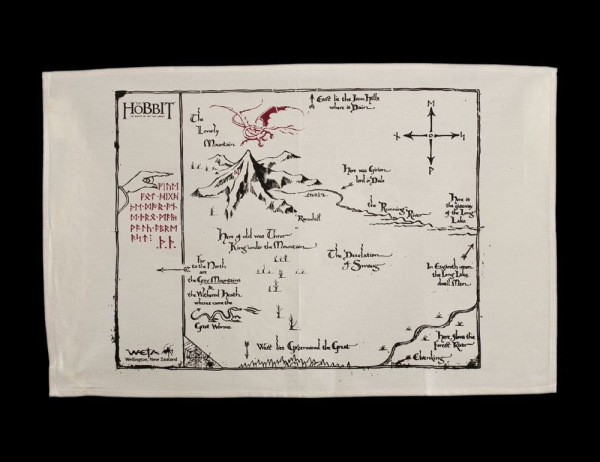 THE
HOBBIT
The
Lonely
Mountain
East lie the Iron Hills
where is Dain
Here was Girion
lord in Dale
the Running River
Here is
the gateway
of the Long
Lake
Ravenhill
Here of old was Thror
King under the Mountain
The Desolation
of Smaug
Far
to the North
are
the Grey Mountains
&
the Withered Heath
whence came the
Great Worms
In Esgaroth upon
the Long Lake
dwell Men
Here flows the
Forest River
Elvenking
West lies Mirkwood the Great
WETA
Wellington, New Zealand